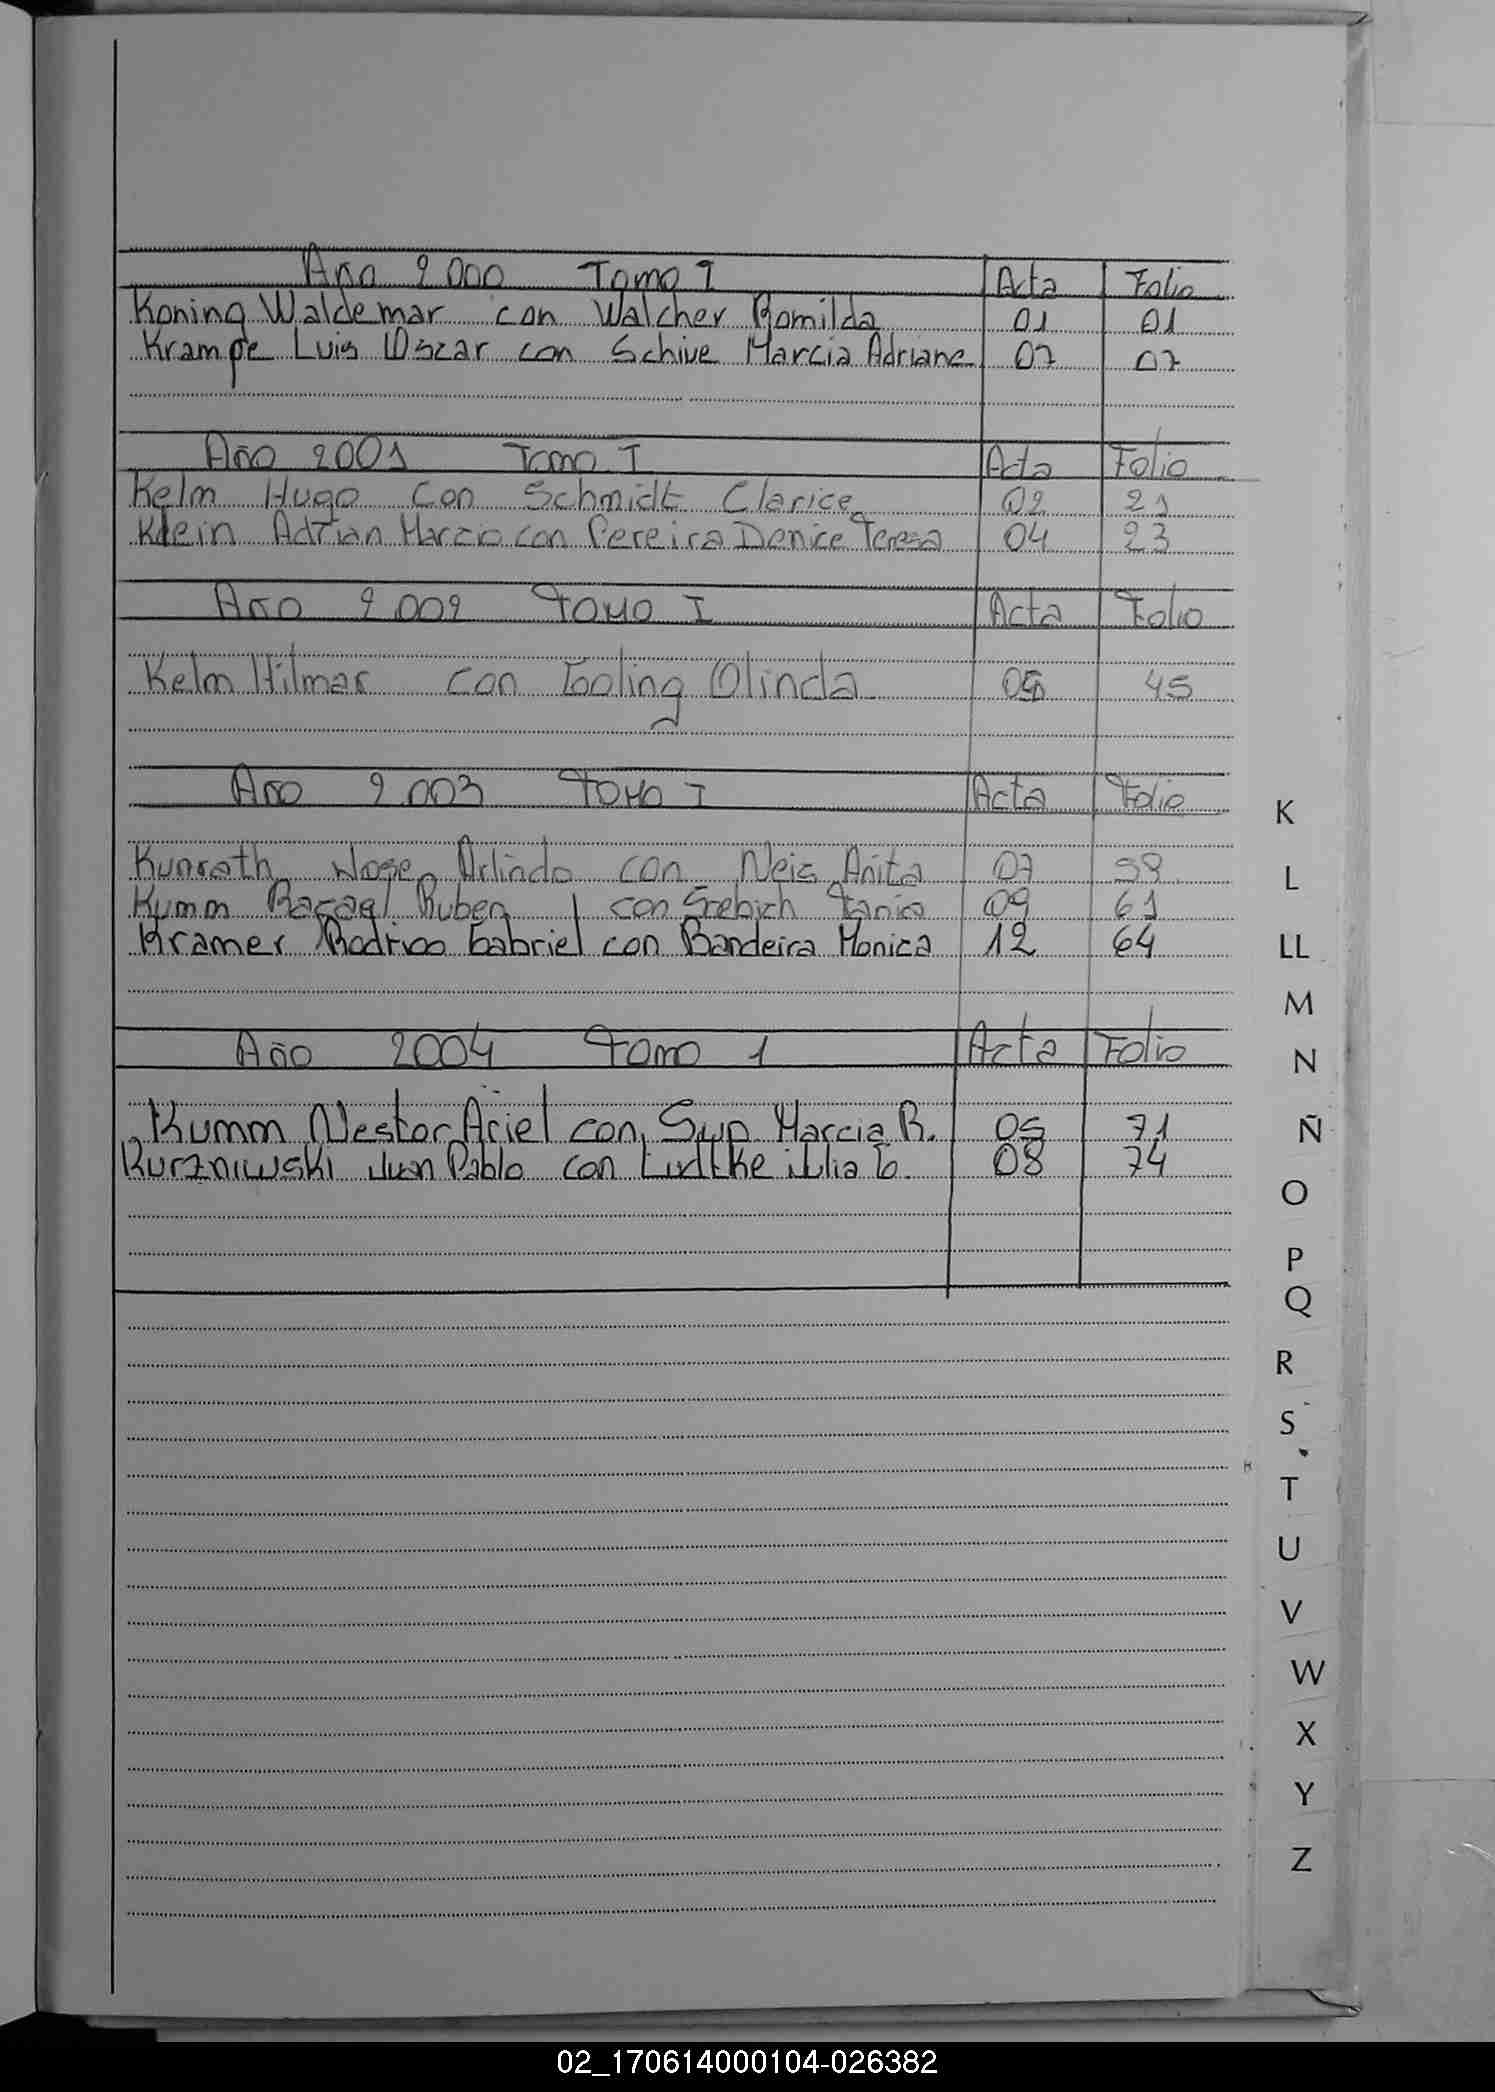 Año 2000 Tomo I Acta Folio
Koning Waldemar con Walcher Romilda 01 01
Krampe Luis Oscar con Schive Marcia Adriane 07 07
Año 2001 Tomo I Acta Folio
Kelm Hugo con Schmidt Clarice 02 21
Klein Adrian Marcio con Pereira Denice Teresa 04 23
Año 2.002 Tomo I Acta Folio
Kelm Hilmar con Olinda 45
Año 2.003 Tomo I Acta Folio
Kunrath Arlindo con Neis Anita 07
Kumm Ruben con Tania 09 61
Kramer Rodrigo Gabriel con Bandeira Monica 12 64
Año 2004 Tomo 1 Acta Folio
Kumm Nestor Ariel con Marcia R. 05 71
Kurzniwski Juan Pablo con 08 74
K
L
LL
M
N
Ñ
O
P
Q
R
S
T
U
V
W
X
Y
Z
02_170614000104-026382